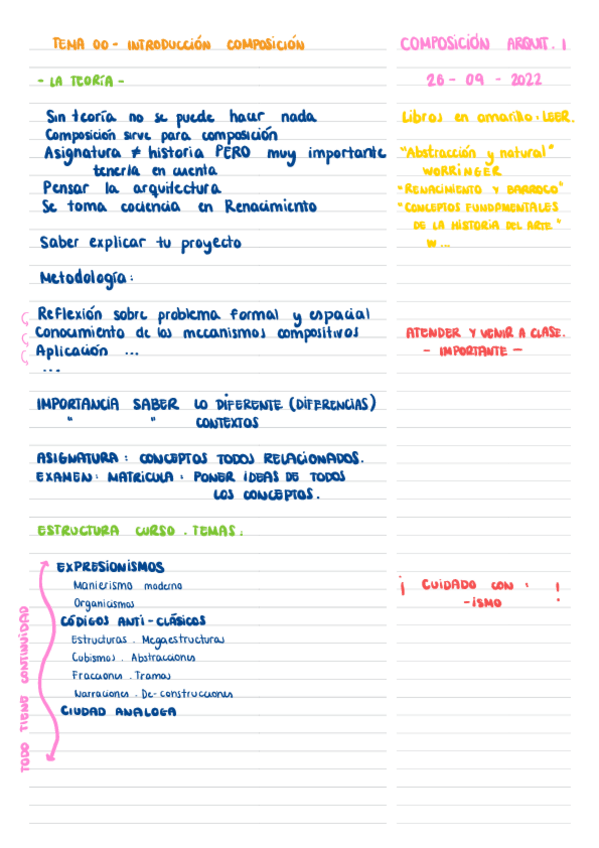 TEMA 00 - INTRODUCCIÓN COMPOSICIÓN
COMPOSICIÓN ARQUIT. I
- LA TEORÍA -
26 - 09 - 2022
Sin teoría no se puede hacer nada
Composición sirve para composición
Asignatura ≠ historia PERO muy importante
tenerla en cuenta
Pensar la arquitectura
Se toma cociencia en Renacimiento
Saber explicar tu proyecto
Metodología:
Reflexión sobre problema formal y espacial
Conocimiento de los mecanismos compositivos
Aplicación ...
...
IMPORTANCIA SABER LO DIFERENTE (DIFERENCIAS)
" " CONTEXTOS
ASIGNATURA: CONCEPTOS TODOS RELACIONADOS.
EXAMEN: MATRICULA: PONER IDEAS DE TODOS
LOS CONCEPTOS.
ESTRUCTURA CURSO. TEMAS:
EXPRESIONISMOS
Manierismo moderno
Organicismos
CÓDIGOS ANTI-CLÁSICOS
Estructuras. Megaestructuras
Cubismos. Abstracciones
Fracciones. Tramas
Narraciones. De-construcciones
CIUDAD ANALOGA
TODO TIENE CONTINUIDAD
Libros en amarillo: LEER.
"Abstracción y natural"
WORRINGER
"RENACIMIENTO Y BARROCO"
"CONCEPTOS FUNDAMENTALES
DE LA HISTORIA DEL ARTE"
W...
ATENDER Y VENIR A CLASE.
- IMPORTANTE -
¡ CUIDADO CON: !
-ISMO